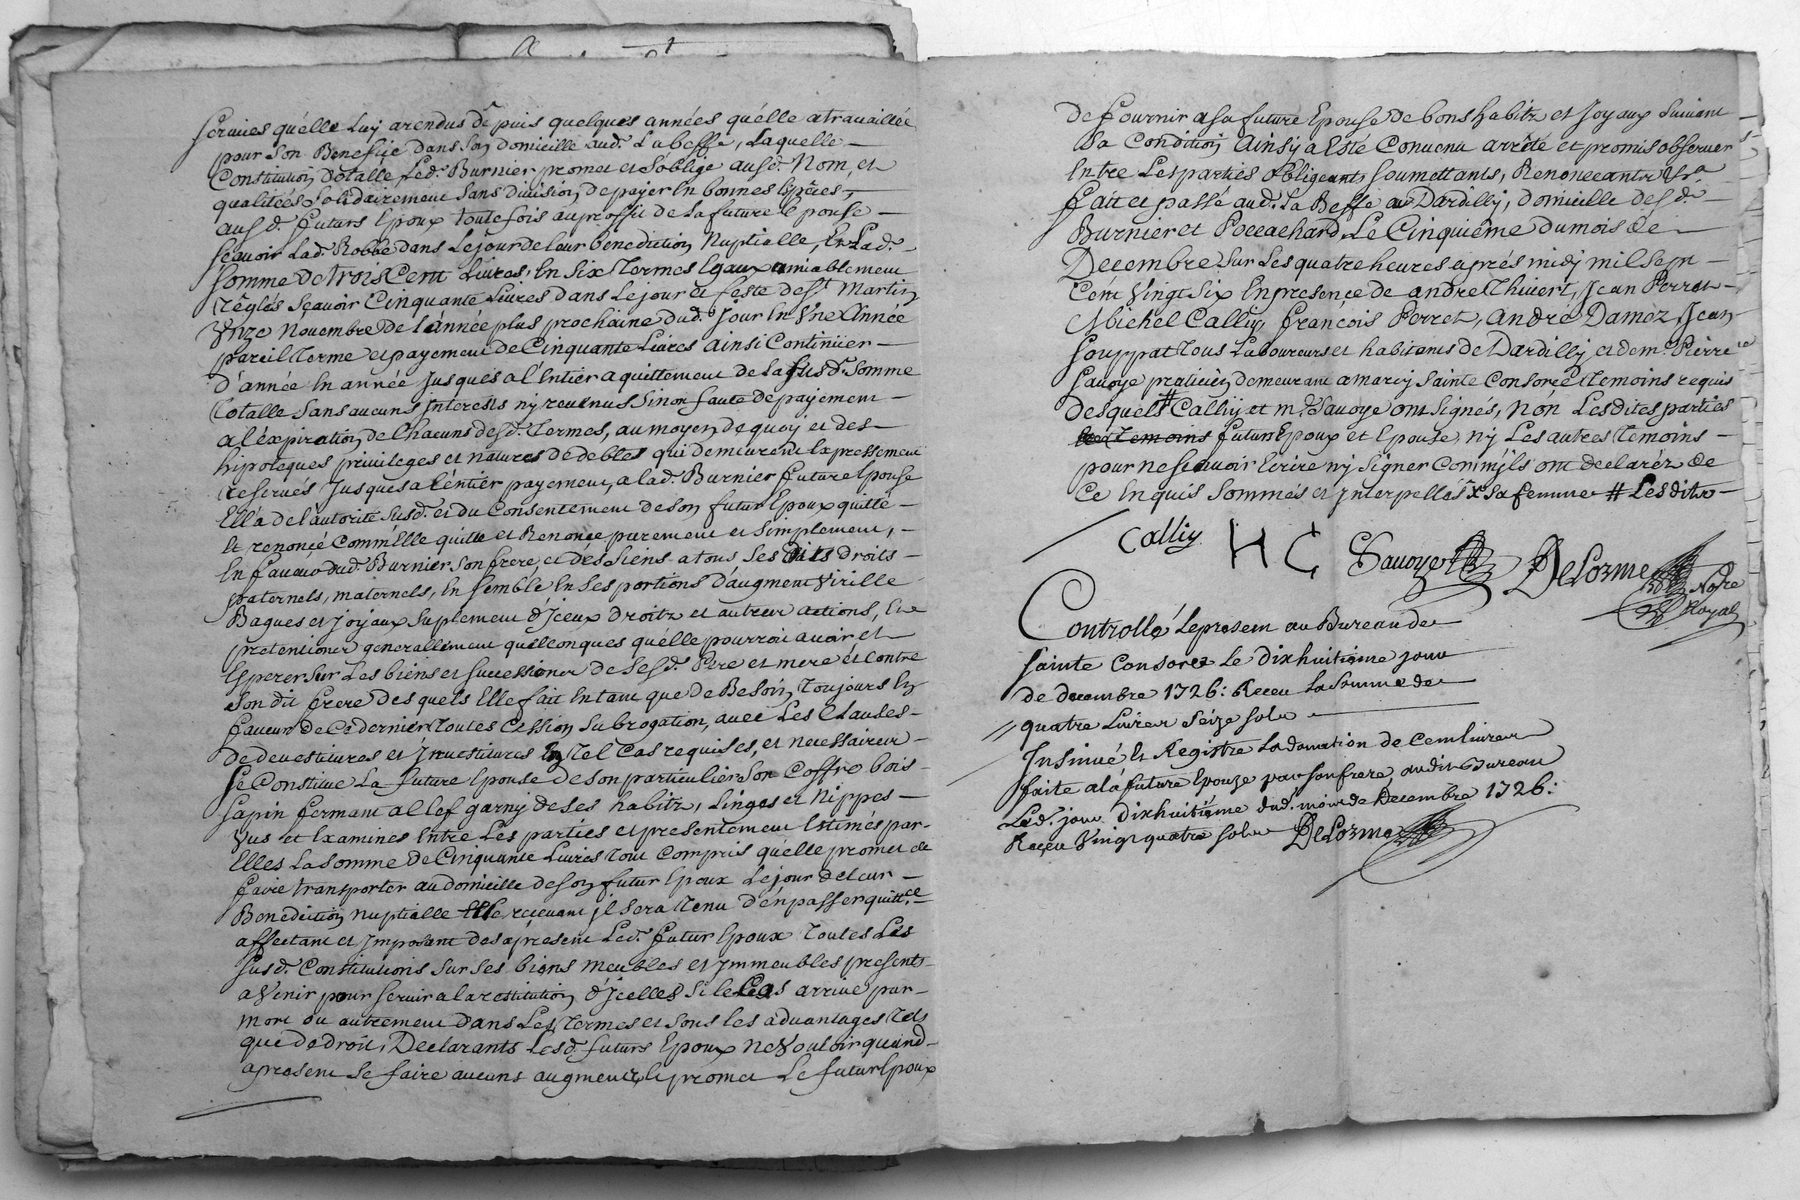 services qu'elle Luy arendus depuis quelques années qu'elle atravaillée
pour son Benefice dans son domicille aud. Labesse, Laquelle
Constitution Totalle Led. Burnier promet et s'oblige ausd. Nom, et
qualitées Solidairement sans division, de payer En bonnes Especes,
ausd. futurs Epoux toutefois auproffit de Lafuture Epouse
scavoir Lad. Robbe dans Lejour deleur benediction Nuptialle, Et Lad.
somme De trois Cent Livres, En Six Termes Egaux amiablement
Reglés scavoir Cinquante Livres dans Lejour et feste de St. Martin
Unze Novembre De L'année plus prochaine dud. Jour En Une Année
pareil Terme et payement de Cinquante Livres ainsi Continüer
d'année En année Jusques a l'Entier aquittement de La susd. Somme
Totalle sans aucuns Interests ny revenus Sinon faute de payement
a l'éxpiration, de Chacuns desd. Termes, au moyen de quoy et des
hipoteques privileges et natures de debtes qui demeurent Expressement
reservés Jusques a l'éntier payement, a lad. Burnier future Epouse
Ella de l'autorité susd. et du Consentement de son futur Epoux quitté
Et renoncé Comm Elle quitte et Renonce purement et Simplement,
En faveur dud. Burnier son frere, et des siens a tous Ses dits droits
paternels, maternels, En semble En ses portions d'augment Virille
Bagues et joyaux suplement d'Iceux droitz et autres actions, Et
pretentions generallement quelconques quélle pourroit avoir et
Esperer sur Les biens et successions de Sesd. Pere et mere et contre
son dit frere desquels Elle fait En tant que de Besoin, toujours En
faveur de Ce dernier, toutes Cession, Subrogation, avec Les Clauses
de devestitures et Investitures En Tel Cas requises, et necessaires
Se Constitue La future Epouse de son particulier Son Coffre bois
sapin fermant a Clef garny de ses habitz, Linges et Nippes
Vus et Examines Entre Les parties et presentement Estimés par
Elles La somme de Cinquante Livres tout Compris quélle promet de
faire transporter au domicille de son futur Epoux Le jour deleur
Benediction nuptialle Elle recevant jl sera Tenu d'en passer quittce
affectant et Imposant des apresent Led. futur Epoux toutes Les
susd. Constitutions sur ses biens meubles et Immeubles presents
a Venir pour servir a la restitution, d'Icelles si le Cas arrive par
mort ou autrement Dans Les Termes et sous les advantages Tels
que de droit, Declarants Lesd. futurs Epoux ne Vouloir quand
apresent se faire aucuns augment, Et promet Le futur Epoux
de fournir a sa future Epouse de bons habitz et Joyaux suivant
sa Condition, Ainsy a Esté Convenu arrété et promis observer
Entre Les parties Obligeants, soumettants, Renonceants &ra.
fait et passé aud. La Besse a Dardilly, domicille desd.
Burnier et Poccachard, Le Cinquiéme du mois de
Decembre Sur Les quatre heures aprés midy mil sept
Cent Vingt Six En presence de andré Thivert, Jean Perret
Michel Calliy, françois Perret, André Damez, Jean
souppat Tous Laboureurs et habitants de Dardilly et de me. Pierre
savoye praticien, demeurant a marcy sainte Consorce Temoins requis
desquels # Calliy et me. Savoye ont signés, Nón Lesdites parties
les Temoins futur Epoux et Epouse, ny Les autres Temoins
pour ne scavoir Ecrire ny signer Comm'jls ont declaréz de
Ce Enquis sommés et Interpellés x sa femme # Lesdits
Calliy. H C Savoye DeLorme Nore Royal
Controllé Le present au Bureau de
sainte Consorce Le dixhuitiéme jour
de decembre 1726: Receu La somme de
quatre Livres séize sols
Insinué Et Registré La donation de Cent livres
faite a la future Epouze par son frere audit Bureau
Led. jour dixhuitiéme dud. mois de Decembre 1726:
Receu Vingt quatre sols DeLorme